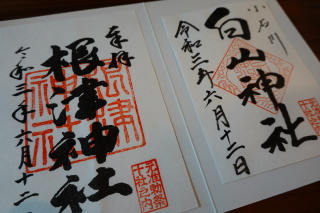 小石川
白山神社
令和三年六月十二日
奉拝
根津神社
令和三年六月十二